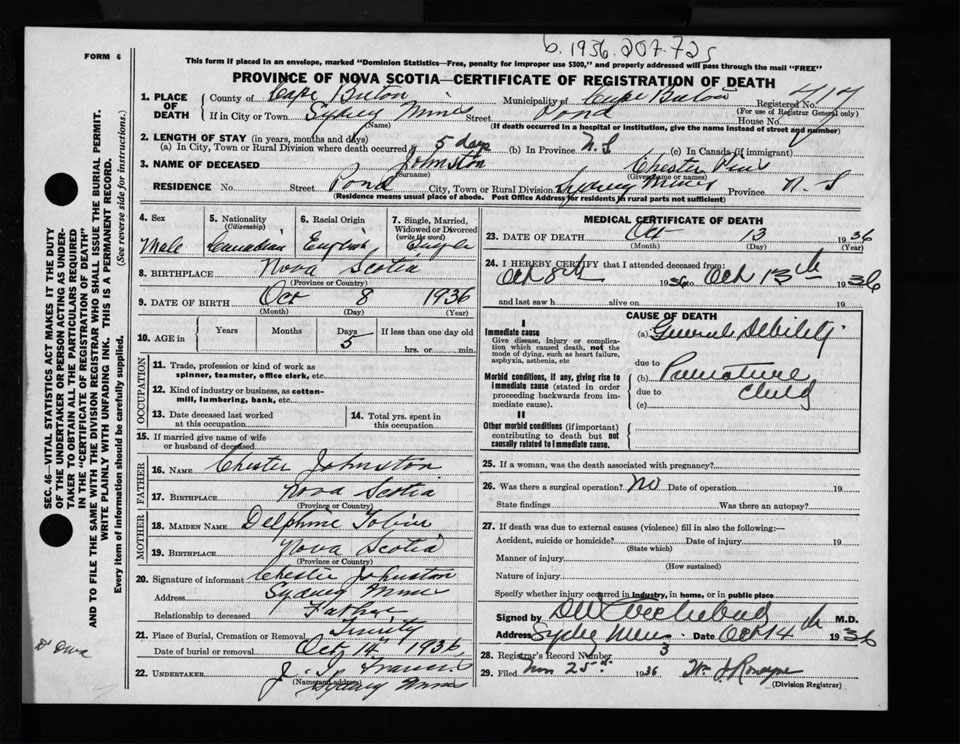 b. 1936. 207.725
FORM 6
This form if placed in an envelope, marked "Dominion Statistics—Free, penalty for improper use $300," and properly addressed will pass through the mail "FREE"
PROVINCE OF NOVA SCOTIA—CERTIFICATE OF REGISTRATION OF DEATH
1. PLACE OF DEATH
County of Cape Breton Municipality of Cape Breton Registered No.
(For use of Registrar General only)
If in City or Town Sydney Mines Street Pond House No.
(Name) (If death occurred in a hospital or institution, give the name instead of street and number)
2. LENGTH OF STAY (in years, months and days)
(a) In City, Town or Rural Division where death occurred 5 days (b) In Province N.S. (c) In Canada (if immigrant)
3. NAME OF DECEASED Johnston Chester
(Surname) (Given name or names)
RESIDENCE No. Street Pond City, Town or Rural Division Sydney Mines Province N.S
(Residence means usual place of abode. Post Office Address for residents in rural parts not sufficient)
4. Sex Male
5. Nationality (Citizenship) Canadian
6. Racial Origin English
7. Single, Married, Widowed or Divorced (write the word) Single
8. BIRTHPLACE Nova Scotia
(Province or Country)
9. DATE OF BIRTH Oct 8 1936
(Month) (Day) (Year)
10. AGE in Years Months Days 5 If less than one day old hrs. or min.
OCCUPATION
11. Trade, profession or kind of work as spinner, teamster, office clerk, etc.
12. Kind of industry or business, as cotton-mill, lumbering, bank, etc.
13. Date deceased last worked at this occupation
14. Total yrs. spent in this occupation
15. If married give name of wife or husband of deceased
FATHER
16. NAME Chester Johnston
17. BIRTHPLACE Nova Scotia
(Province or Country)
MOTHER
18. MAIDEN NAME Delphine Tobin
19. BIRTHPLACE Nova Scotia
(Province or Country)
20. Signature of informant Chester Johnston
Address Sydney Mines
Relationship to deceased Father
21. Place of Burial, Cremation or Removal Trinity
Date of burial or removal Oct 14 1936
22. UNDERTAKER J. Francis
(Name and address) Sydney Mines
MEDICAL CERTIFICATE OF DEATH
23. DATE OF DEATH Oct 13 1936
(Month) (Day) (Year)
24. I HEREBY CERTIFY that I attended deceased from:
Oct 8th 1936 to Oct 13th 1936
and last saw h alive on 19
CAUSE OF DEATH
I
Immediate cause
Give disease, injury or complication which caused death, not the mode of dying, such as heart failure, asphyxia, asthenia, etc
(a) General Debility
due to
Morbid conditions, if any, giving rise to immediate cause (stated in order proceeding backwards from immediate cause).
(b) Premature
due to Child
(c)
II
Other morbid conditions (if important) contributing to death but not causally related to immediate cause.
25. If a woman, was the death associated with pregnancy?
26. Was there a surgical operation? No Date of operation 19
State findings Was there an autopsy?
27. If death was due to external causes (violence) fill in also the following:—
Accident, suicide or homicide? Date of injury 19
(State which)
Manner of injury
(How sustained)
Nature of injury
Specify whether injury occurred in Industry, in home, or in public place
Signed by M.D.
Address Sydney Mines Date Oct 14th 1936
28. Registrar's Record Number 3
29. Filed Nov 25th 1936
(Division Registrar)
SEC. 46—VITAL STATISTICS ACT MAKES IT THE DUTY
OF THE UNDERTAKER OR PERSON ACTING AS UNDER-
TAKER TO OBTAIN ALL THE PARTICULARS REQUIRED
IN THE "CERTIFICATE OF REGISTRATION OF DEATH"
AND TO FILE THE SAME WITH THE DIVISION REGISTRAR WHO SHALL ISSUE THE BURIAL PERMIT.
WRITE PLAINLY WITH UNFADING INK. THIS IS A PERMANENT RECORD.
Every item of information should be carefully supplied. (See reverse side for instructions.)